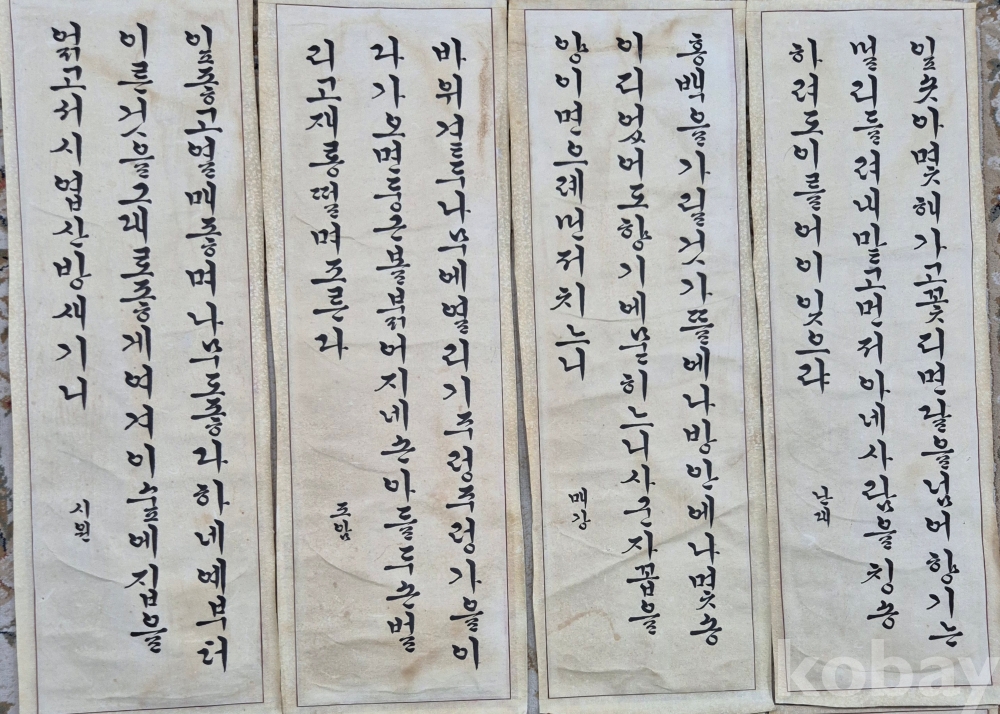 잎솟아몇해가고꽃디면달을넘어향기는
멀리들려비맡고먼저아네사람을칭송
하려도이를어이잊으랴
홍백을가릴것가뜰에나방안에나몇송
이리었어도향기에묻히느니사군자꼽을
양이면으레먼저치느니
매강
나무에열리기주렁주렁가을이
라가으면둥근볼붉어지네손아들두손벌
리고재롱떨며조른다
도암
잎좋고열매좋며나무도좋라하네예부터
이른것을그래로좋게여겨이숲에집을
얽고서시업산방새기니
시원
kobay